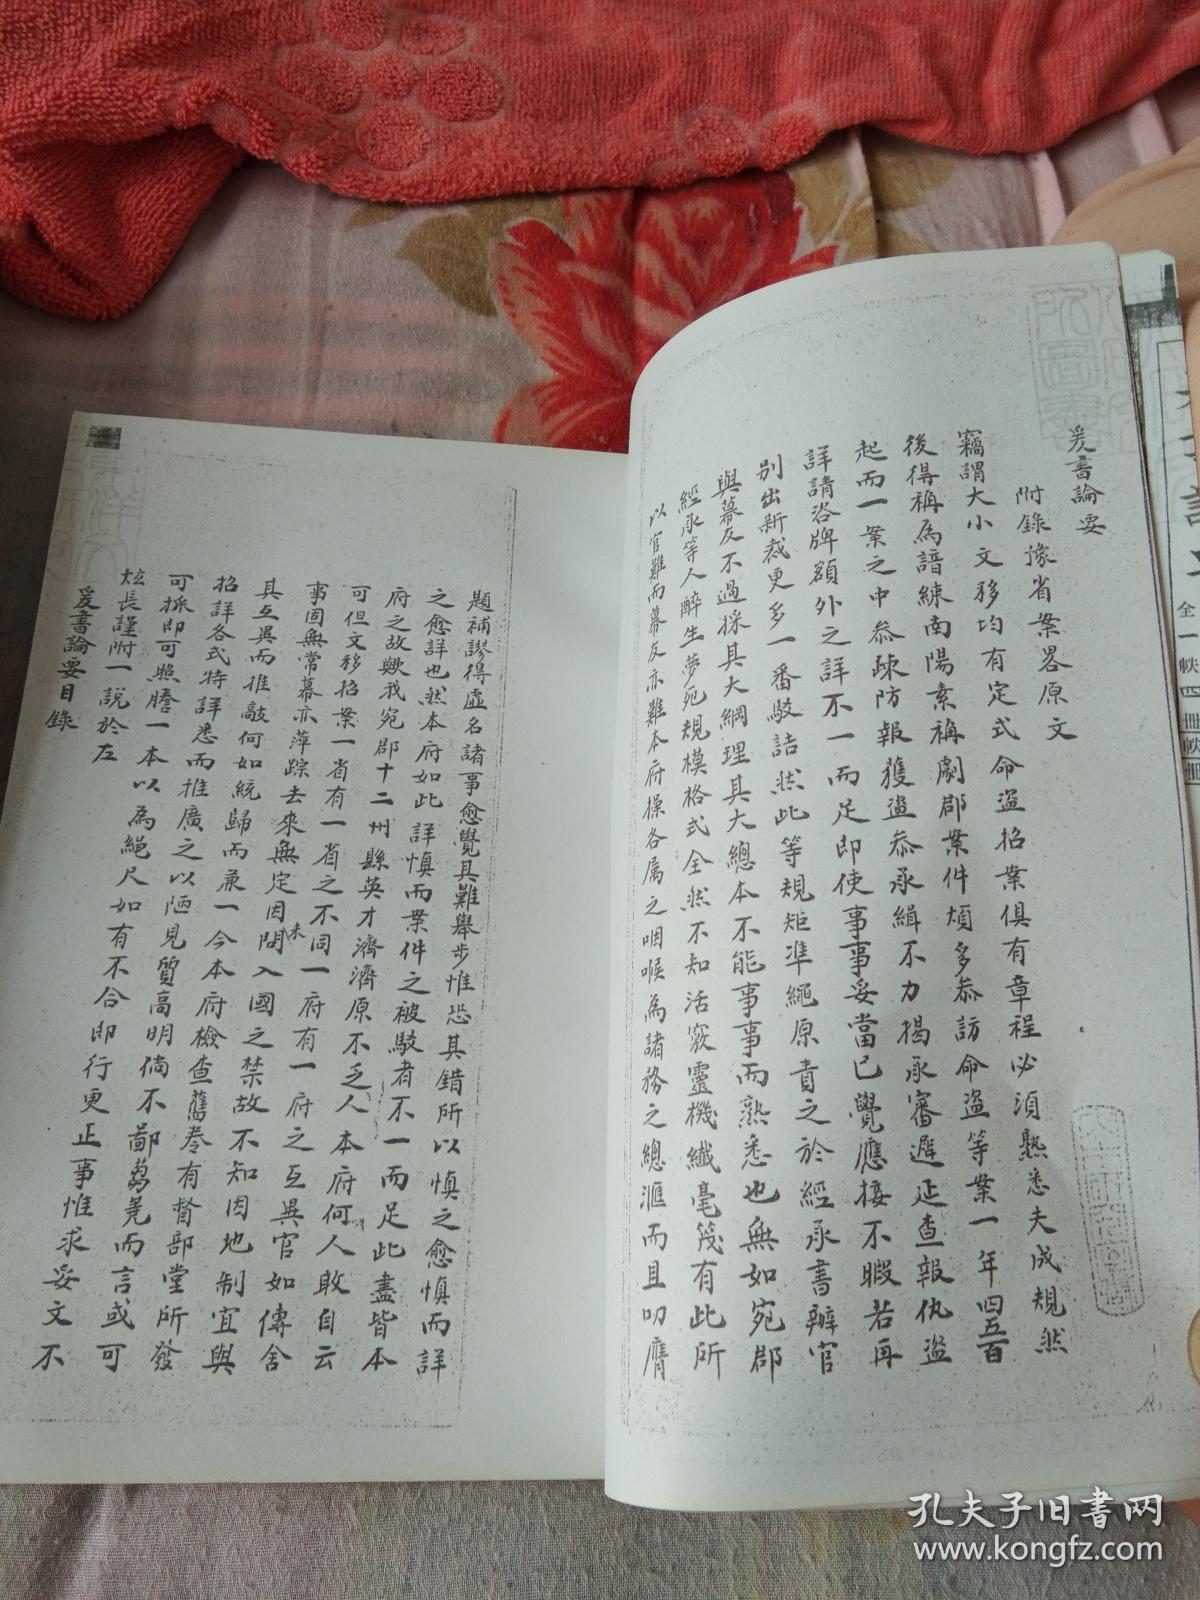 爰書論要
附錄豫省案畧原文
竊謂大小文移均有定式命盜招案俱有章程必須熟悉夫成規然
後得稱為諳練南陽素稱劇郡案件煩多叅訪命盜等案一年四五百
起而一案之中叅疎防報獲盜叅承緝不力揭承審遲延查報仇盜
詳請咨牌額外之詳不一而足即使事事妥當已覺應接不暇若再
別出新裁更多一番駁詰然此等規矩準繩原責之於經承書辦官
與幕友不過採其大綱理其大總本不能事事而熟悉也無如宛郡
經承等人醉生夢死規模格式全然不知活竅靈機纖毫笺有此所
以官難而幕友亦難本府操各属之咽喉為諸務之總滙而且叨膺
題補謬得虛名諸事愈覺其難舉步惟恐其錯所以慎之愈慎而詳
之愈詳也然本府如此詳慎而案件之被駁者不一而足此盡皆本
府之故歟我宛郡十二州縣英才濟濟原不乏人本府何人敢自云
可但文移招案一省有一省之不同一府有一府之互異官如傳舍
事固無常幕亦萍踪去來無定因未問入國之禁故不知因地制宜與
其互異而推敲何如統歸而兼一今本府檢查舊卷有督部堂所發
招詳各式特詳悉而推廣之以陋見質高明倘不鄙芻蕘而言或可
可採即可照謄一本以為繩尺如有不合即行更正事惟求妥文不
炫長謹附一說於左
爰書論要目錄
全一帙四冊
孔夫子旧書网
www.kongfz.com